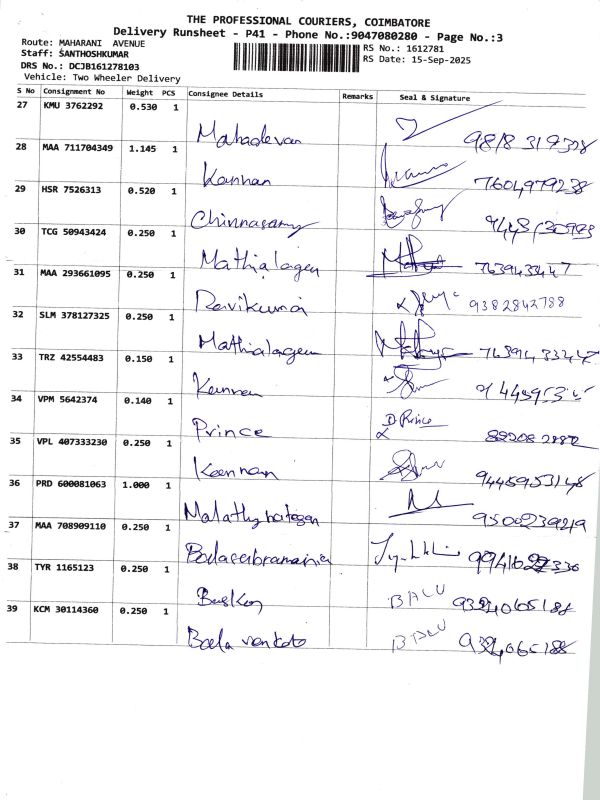 THE PROFESSIONAL COURIERS, COIMBATORE
Delivery Runsheet - P41 - Phone No.:9047080280 - Page No.:3
Route: MAHARANI AVENUE
Staff: SANTHOSHKUMAR
RS No.: 1612781
DRS No.: DCJB161278103
RS Date: 15-Sep-2025
Vehicle: Two Wheeler Delivery
S No Consignment No Weight PCS Consignee Details Remarks Seal & Signature
27 KMU 3762292 0.530 1
Mahadevan
28 MAA 711704349 1.145 1
Kannan 7604979238
29 HSR 7526313 0.520 1
Chinnasamy
30 TCG 50943424 0.250 1
Mathialagen 7639433447
31 MAA 293661095 0.250 1
Ravikumar 9382842788
32 SLM 378127325 0.250 1
Mathialagen 7639433447
33 TRZ 42554483 0.150 1
Kannan
34 VPM 5642374 0.140 1
Prince D Prince
35 VPL 407333230 0.250 1
Kannan 9445953148
36 PRD 600081063 1.000 1
9500239219
37 MAA 708909110 0.250 1
Balasubramania
38 TYR 1165123 0.250 1
BALU
39 KCM 30114360 0.250 1
Bala BALU 9324065188